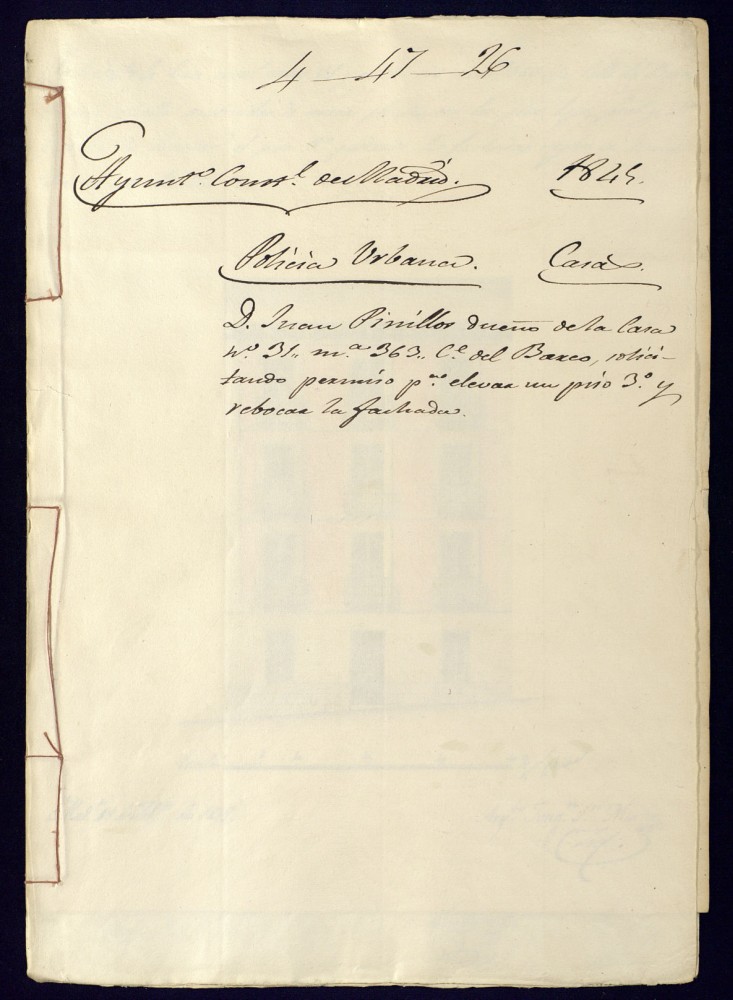 4-47-26
Ayunto. Constl. de Madrid. 1845.
Policia Urbana. Casas.
D. Juan Pinillos dueño de la Casa
nº. 31,, m.a 363,, C.e del Barco, solici-
tando permiso p.a elevar un piso 3.º y
rebocar la fachada.